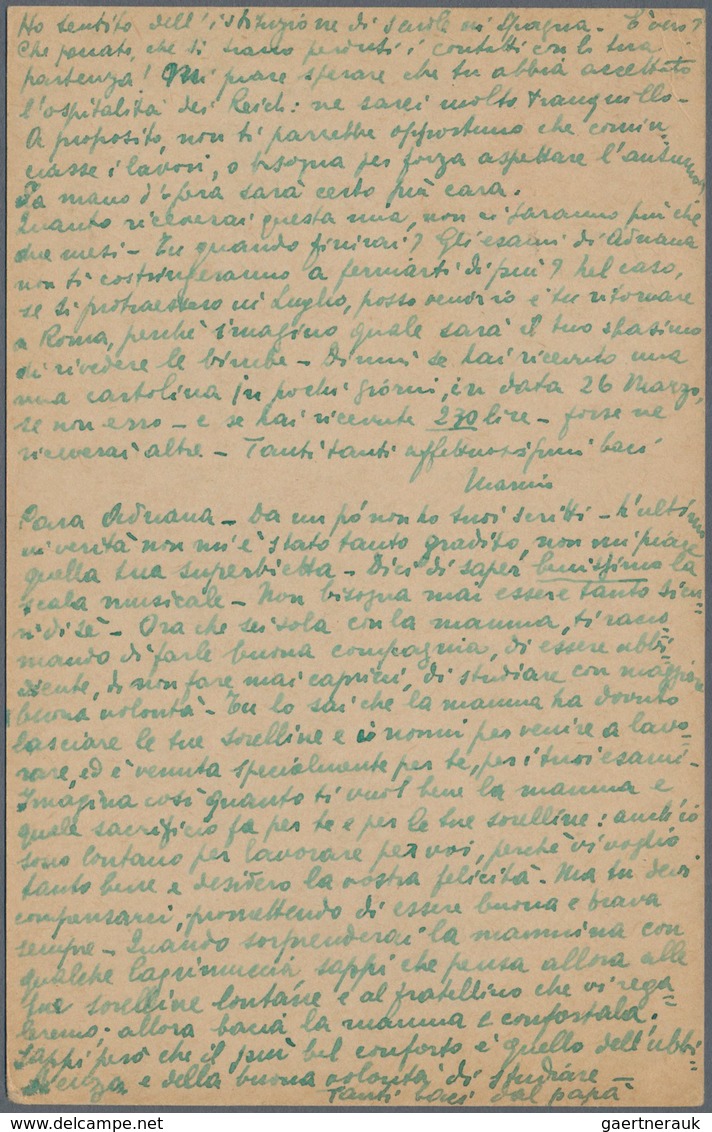 Ho sentito dell'istituzione di scuole in Spagna - È vero?
Che peccato, che si siano perduti i contatti con la tua
partenza! Mi piace sperare che tu abbia accettato
l'ospitalità dei Reich: ne sarei molto tranquillo -
A proposito, non ti parrebbe opportuno che comin
ciasse i lavori, o bisogna per forza aspettare l'autunno?
La mano d'opera sarà certo più cara.
Quanto riceverai questa mia, non ci saranno più che
due mesi - Tu quando finirai? Gli esami di Adriana
non ti costringeranno a fermarti di più? Nel caso,
se si protraessero in Luglio, posso venir io e tu ritornare
a Roma, perchè immagino quale sarà il tuo spasimo
di rivedere le bimbe - Dimmi se hai ricevuto una
mia cartolina in pochi giorni, in data 26 Marzo,
se non erro - e se hai ricevute 230 lire - forse ne
riceverai altre - Tanti tanti affettuosissimi baci
Cara Adriana - Da un pó non ho tuoi scritti - L'ultimo
in verità non mi è stato tanto gradito, non mi piace
quella tua superbietta - Dici di saper benissimo la
scala musicale - Non bisogna mai essere tanto sicu=
ri di sè - Ora che sei sola con la mamma, ti racco
mando di farle buona compagnia, di essere ubbi=
diente, di non fare mai capricci, di studiare con maggiore
buona volontà - Tu lo sai che la mamma ha dovuto
lasciare le tue sorelline e i nonni per venire a lavo=
rare, ed è venuta specialmente per te, per i tuoi esami -
Imagina così quanto ti vuol bene la mamma e
quale sacrificio fa per te e per le tue sorelline: anch'io
sono lontano per lavorare per voi, perchè vi voglio
tanto bene e desidero la vostra felicità - Ma tu devi
compensarci, promettendo di essere buona e brava
sempre - Quando sorprenderai la mammina con
qualche lagrimuccia sappi che pensa allora alle
tue sorelline lontane e al fratellino che vi rega=
leremo; allora bacia la mamma e confortala.
Sappi però che il più bel conforto è quello dell'ubbi=
dienza e della buona volontà di studiare -
Tanti baci dal papà
gaertnerauk